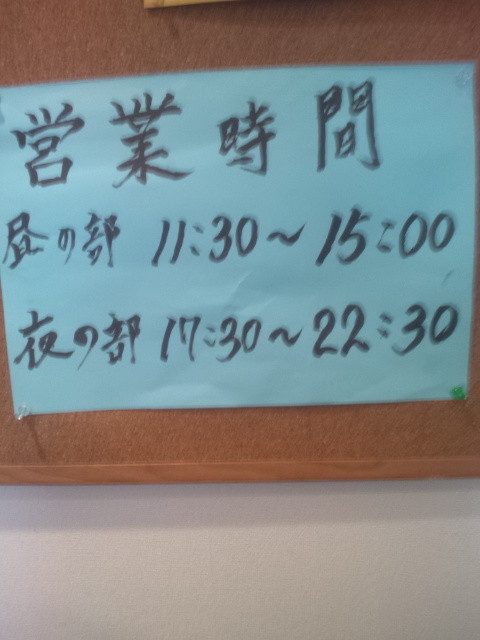 営業時間
昼の部 11:30~15:00
夜の部 17:30~22:30